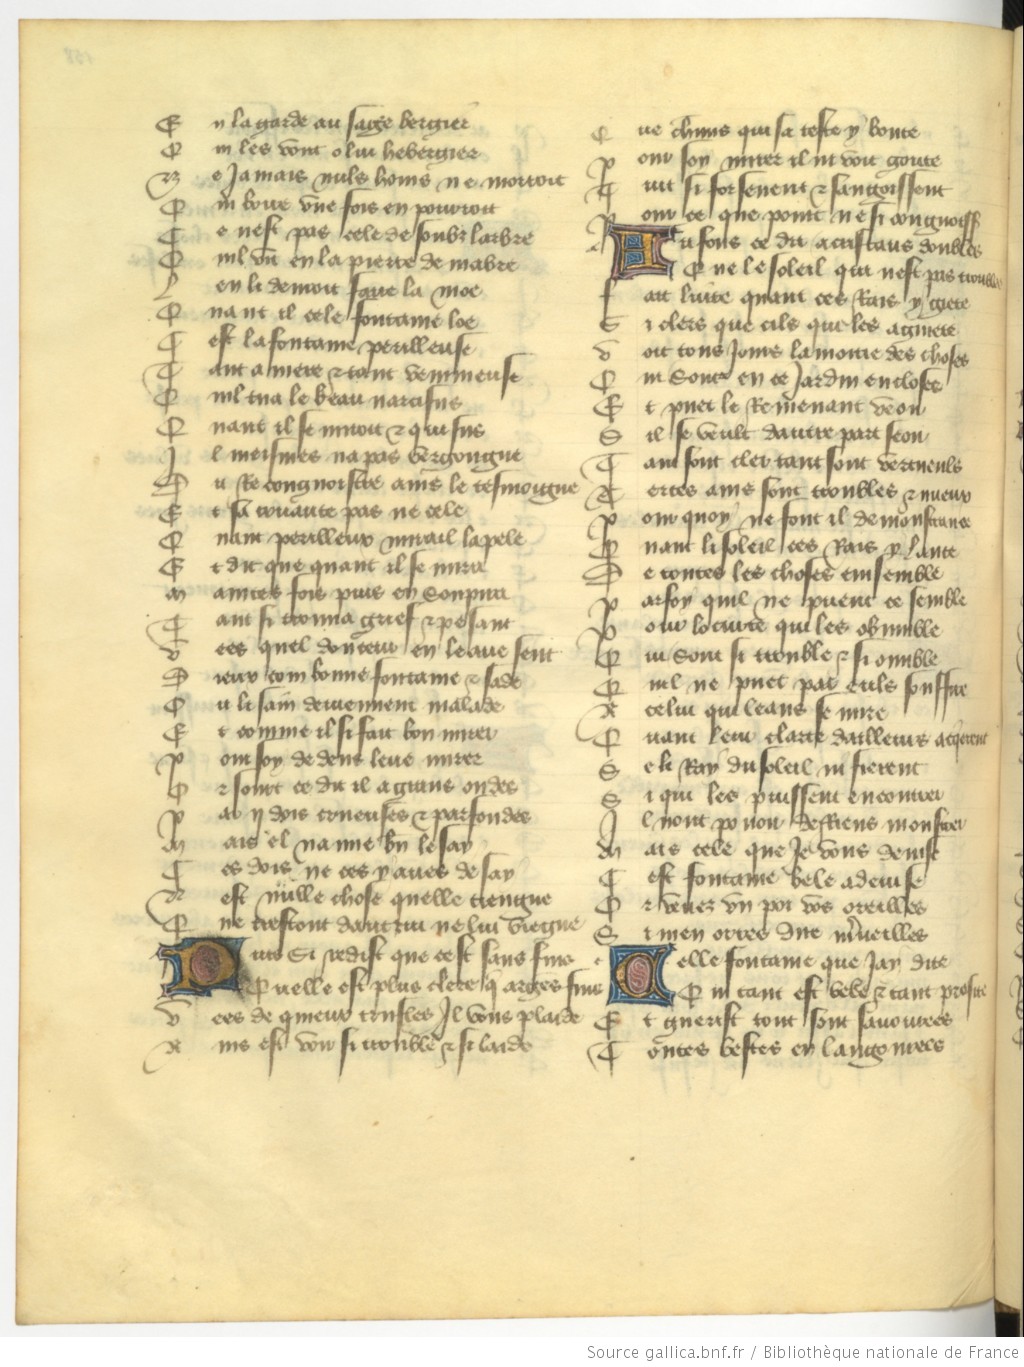 En la garde au saige bergier
Qui les vont o lui hebergier
Ne jamais nuls homs ne morroit
Qui boire une fois en pourroit
Ce nest pas cele desoubz larbre
Quil vit en la pierre de mabre
Len li devroit faire la moe
Quant il cele fontaine loe
Cest la fontaine perilleuse
Tant amere et tant venimeuse
Quil tua le beau narcisus
Quant il se miroit et qui sus
Il meismes na pas vergongne
Du recongnoistre ains le tesmoigne
Et sa cruaute pas ne cele
Quant perilleux mirail lapele
Et dit que quant il se mira
Maintes fois puis en soupira
Tant si trouva grief et pesant
Vees quel douceur en leaue sent
Dieux com bonne fontaine et sade
Ou li sain deviennent malade
Et comme il si fait bon mirer
Pour soy dedens leue mirer
Or sourt ce dit il a grans ondes
Par ij dois creuses et parfondes
Mais el na mie bn le say
Ces dois ne ces yaues de say
Nest nulle chose quelle tiengne
Que trestout dautrui ne lui viegne
Puis si redist que cest sans fins
Quelle est plus clere q argens fins
Vees de queux trufles il vous plaide
Ains est voir si trouble et si laide
Que chuns qui sa teste y boute
Pour soy mirer il ni voit goute
Tuit si forsenent et sangoissent
Pour ce que point ne si congnoiss
Au fons ce dit a cristaus doubles
Que le soleil qui nest pas troubles
Fait luire quant ces rais y giete
Si clers que cils qui les aguiete
Voit tous jours la moitie des choses
Qui sont en ce jardin encloses
Et puet le remenant veoir
Sil se veult dautre part seoir
Tant sont cler tant sont vertueuls
Certes ains sont troubles et nueux
Pour quoy ne font il demonstrance
Quant li soleil ces rais y lance
De toutes les choses ensemble
Par foy quil ne puent ce semble
Pour locurte qui les obnuble
Qui sont si trouble et si onuble
Quil ne puet par euls souffire
A celui qui leans se mire
Quant leur clarte dailleurs acquierent
Se li ray du soleil ni fierent
Si qui les puissent encontrer
Il nont pouoir de riens monstrer
Mais cele que je vous devise
Cest fontaine bele a devise
Or levez un poi vos oreilles
Si men orres dire mveilles
Celle fontaine que jay dite
Qui tant est bele et tant profite
Et guerist tant sont savourees
Toutes bestes enlangourees